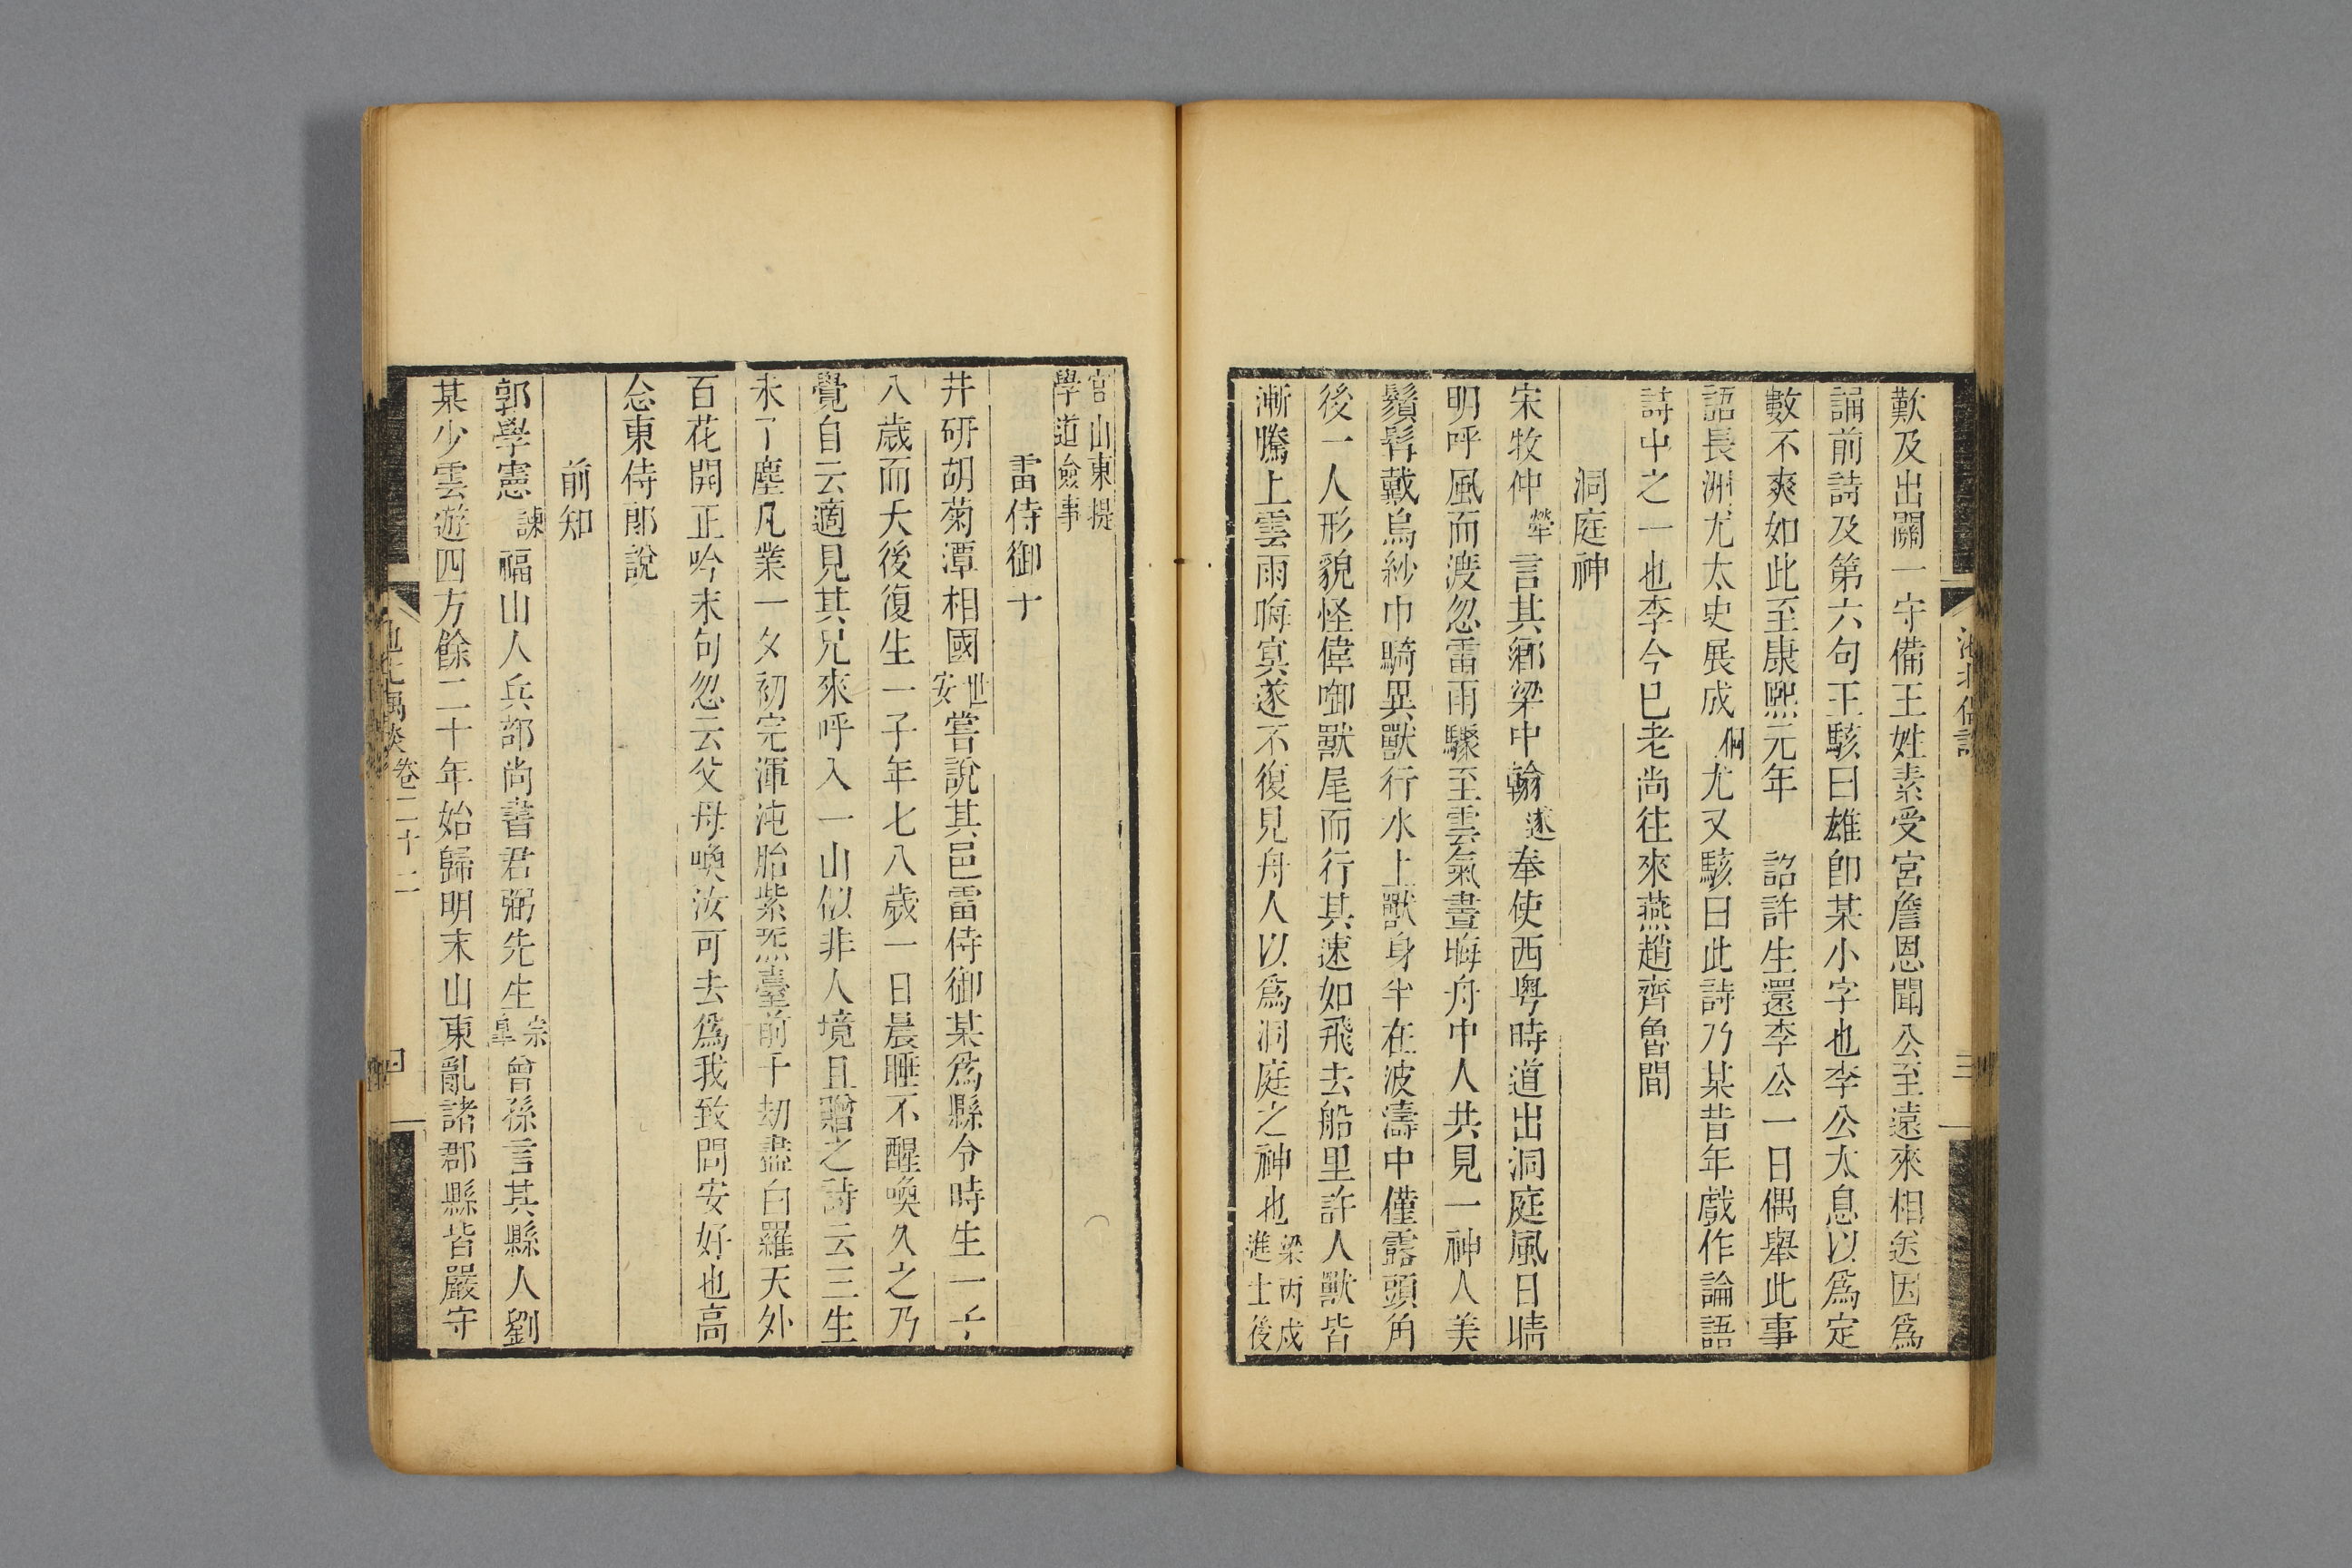 歎及出關一守備王姓素受宮詹恩聞公至遠來相送因爲
誦前詩及第六句王駭曰雄卽某小字也李公太息以爲定
數不爽如此至康熙元年 詔許生還李公一日偶舉此事
語長洲尤太史展成侗尤又駭曰此詩乃某昔年戲作論語
詩中之一也李今已老尚往來燕趙齊魯間
洞庭神
宋牧仲犖言其鄉梁中翰遂奉使西粤時道出洞庭風日晴
明呼風而渡忽雷雨驟至雲氣晝晦舟中人共見一神人美
鬚髯戴烏紗巾騎異獸行水上獸身半在波濤中僅露頭角
後一人形貌怪偉啣獸尾而行其速如飛去船里許人獸皆
漸騰上雲雨晦冥遂不復見舟人以爲洞庭之神也梁丙戌進士後
官山東提學道僉事
雷侍御子
井研胡菊潭相國世安嘗說其邑雷侍御某爲縣令時生一子
八歲而夭後復生一子年七八歲一日晨睡不醒喚久之乃
覺自云適見其兄來呼入一山似非人境且贈之詩云三生
未了塵凡業一夕初完渾沌胎紫炁臺前千劫盡白羅天外
百花開正吟末句忽云父母喚汝可去爲我致問安好也高
念東侍郎說
前知
郭學憲諫福山人兵部尚書君弼先生宗臯曾孫言其縣人劉
某少雲遊四方餘二十年始歸明末山東亂諸郡縣皆嚴守
池北偶談 卷二十二